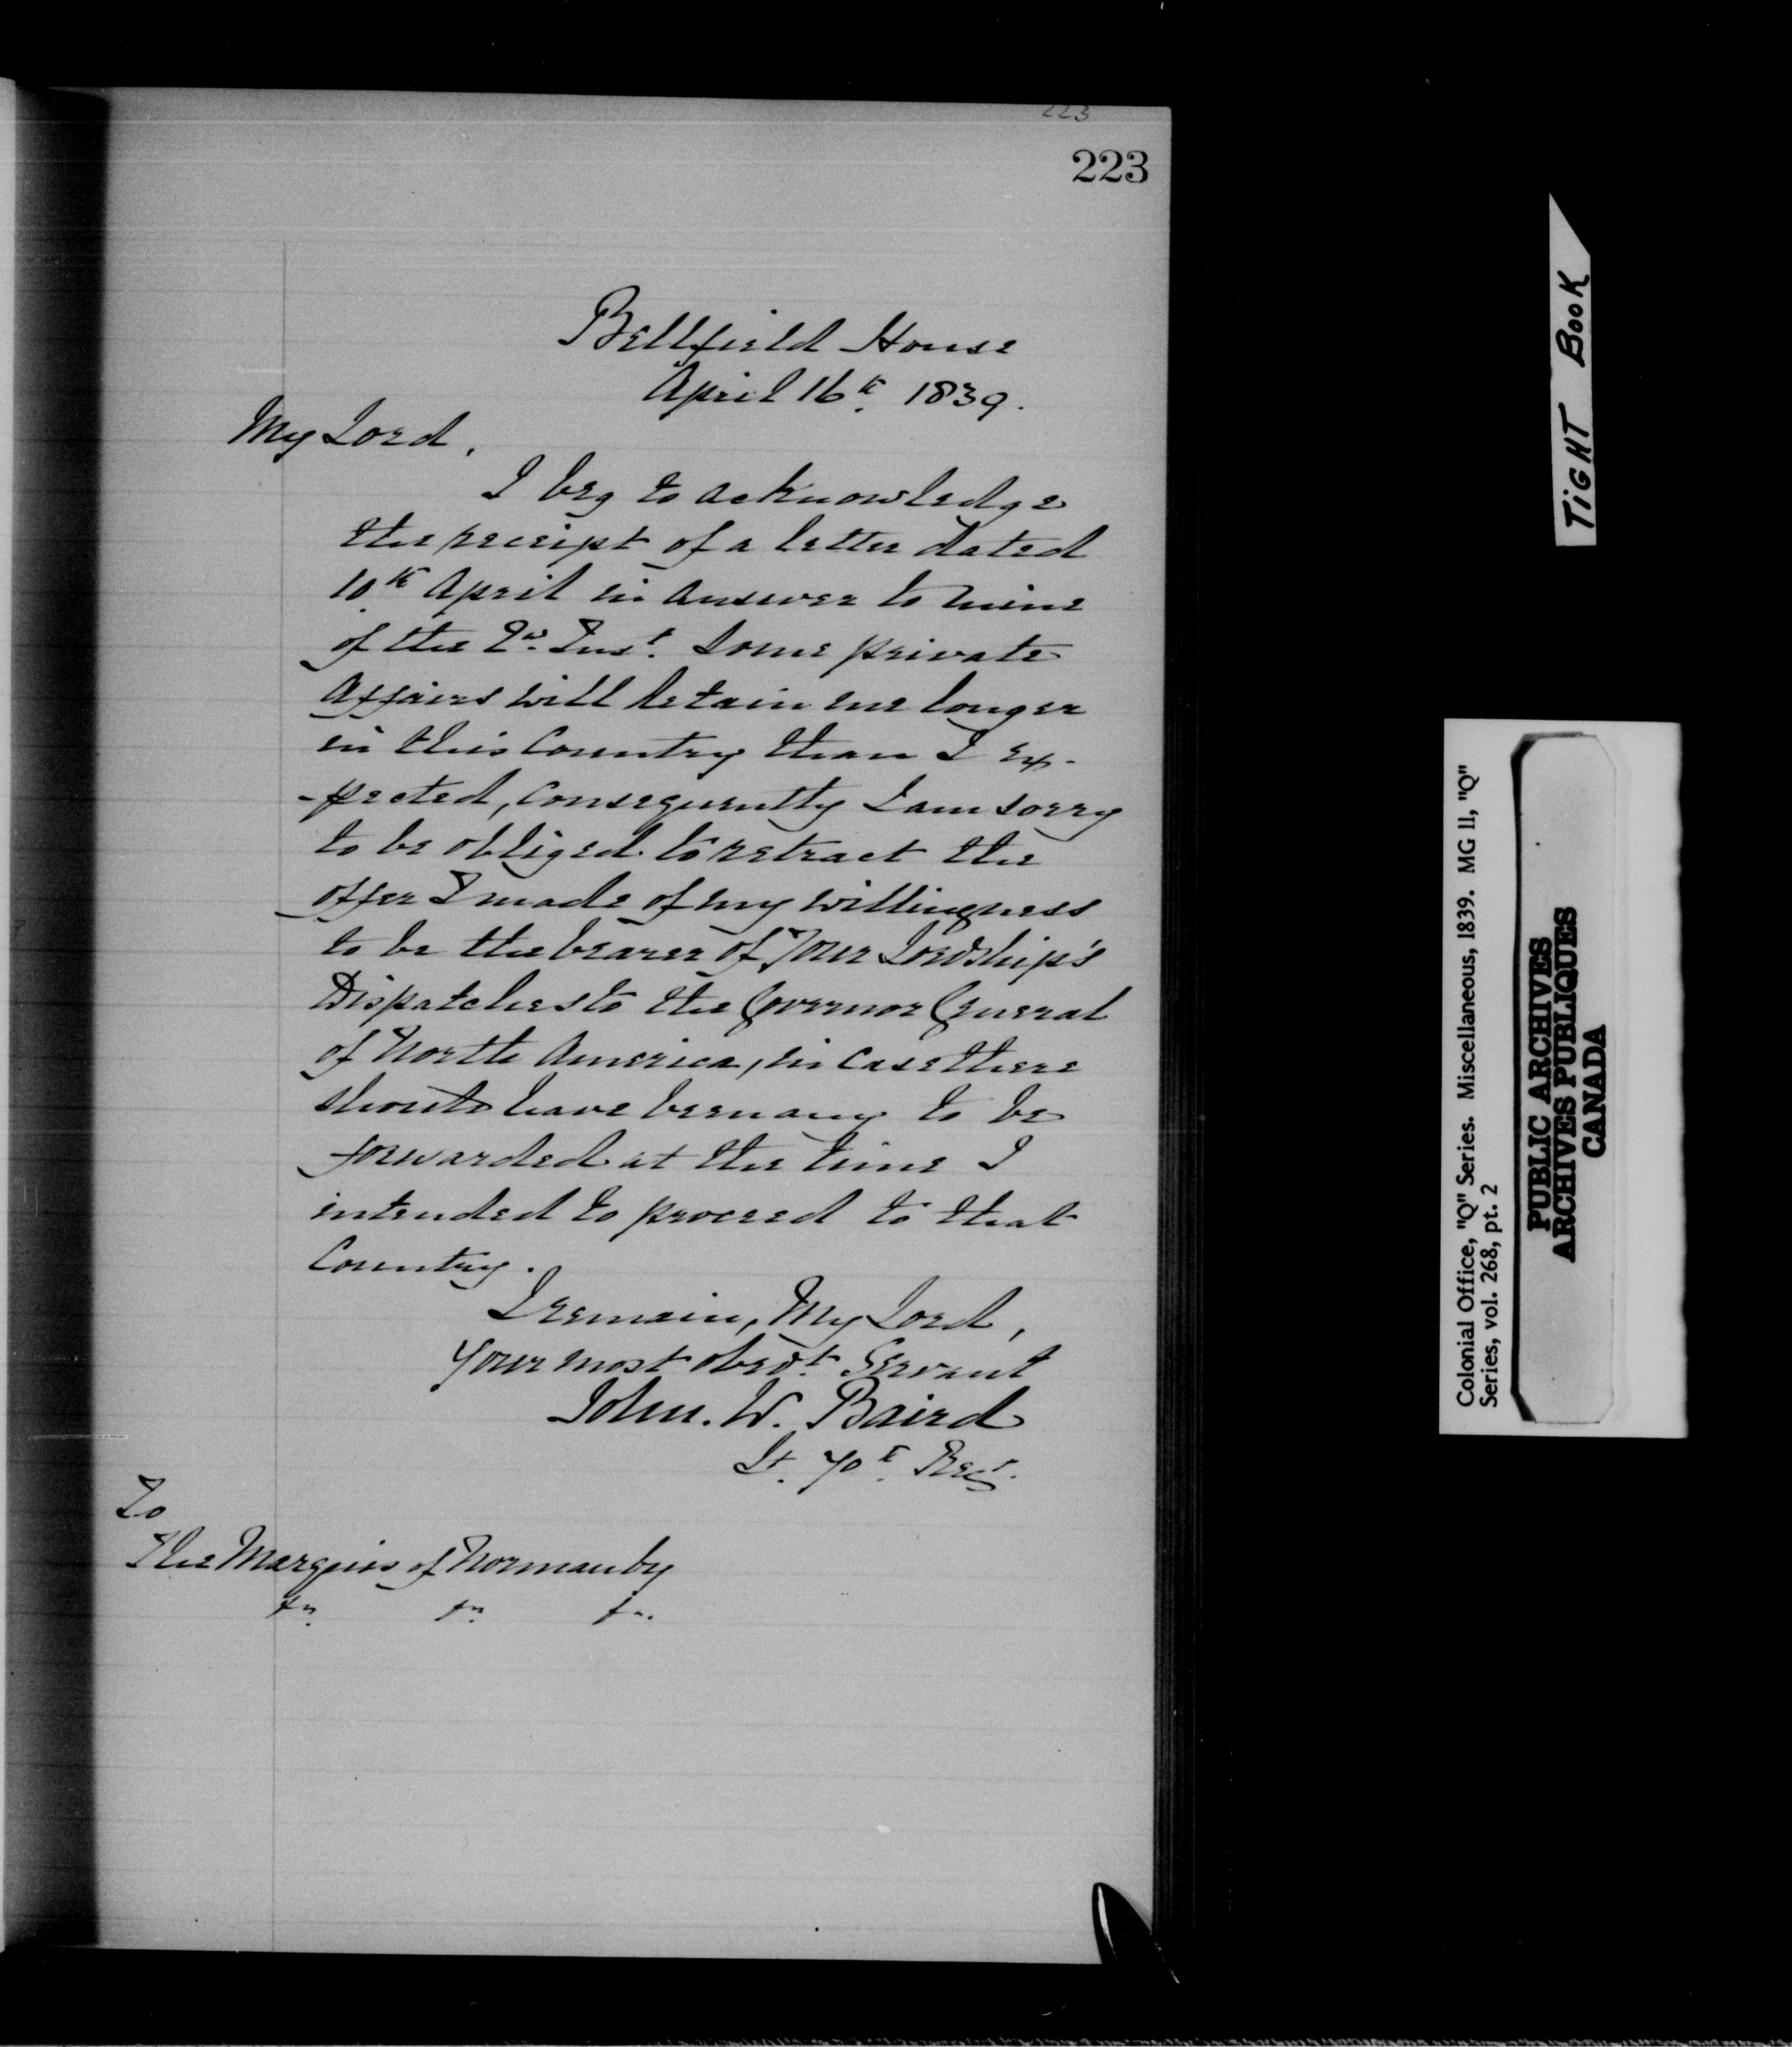 223
223
Bellfield House
April 16th 1839.
My Lord,
I beg to acknowledge
the receipt of a letter dated
10th April in answer to mine
of the 2nd Inst. Some private
affairs will detain me longer
in this Country than I ex-
-pected, Consequently I am sorry
to be obliged to retract the
offer I made of my willingness
to be the bearer of Your Lordship's
Dispatches to the Governor General
of North America, in case there
should have been any to be
forwarded at the time I
intended to proceed to that
Country.
I remain, My Lord,
Your most obedt. Servant
John. W. Baird
Lt. 70th Regt.
To
The Marquis of Normanby
&c. &c. &c.
TIGHT BOOK
Colonial Office, "Q" Series. Miscellaneous, 1839. MG 11, "Q"
Series, vol. 268, pt. 2
PUBLIC ARCHIVES
ARCHIVES PUBLIQUES
CANADA